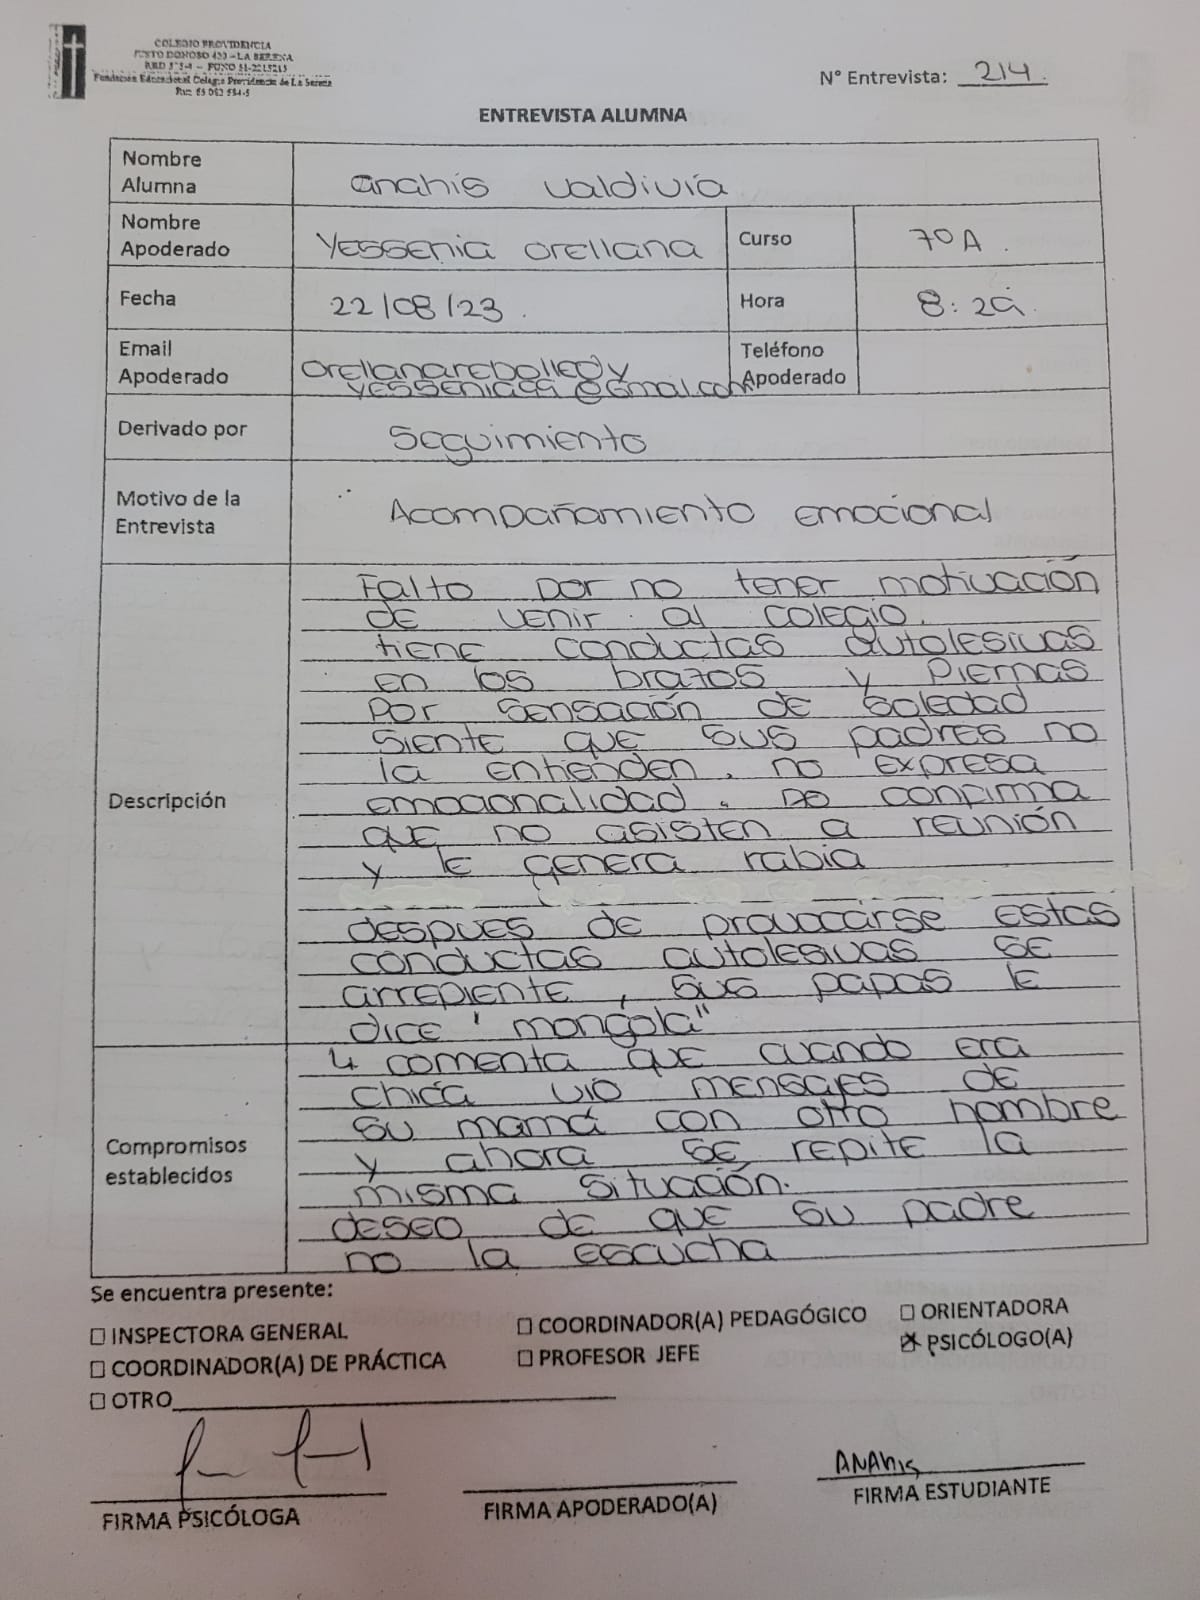 COLEGIO PROVIDENCIA
JUSTO DONOSO 420 - LA SERENA
Fundación Educacional Colegio Providencia de La Serena
N° Entrevista: 214.
ENTREVISTA ALUMNA
Nombre Alumna
anahis valdivia
Nombre Apoderado
Yessenia orellana
Curso
7º A.
Fecha
22/08/23.
Hora
Email Apoderado
yessenia99@gmail.com
Teléfono Apoderado
Derivado por
Seguimiento
Motivo de la Entrevista
Acompañamiento emocional
Descripción
Falto por no tener motivación
de venir al colegio.
tiene conductas autolesivas
en los brazos y piernas
por sensación de soledad
siente que sus padres no
la entienden, no expresa
emocionalidad. confirma
que no asisten a reunión
y le genera rabia
despues de provocarse estas
conductas autolesivas se
arrepiente, sus papas le
dice "mongola"
Compromisos establecidos
comenta que cuando era
chica vio mensajes de
su mamá con otro hombre
y ahora se repite la
misma situación.
deseo de que su padre
no la escucha
Se encuentra presente:
☐ INSPECTORA GENERAL
☐ COORDINADOR(A) PEDAGÓGICO
☐ ORIENTADORA
☐ COORDINADOR(A) DE PRÁCTICA
☐ PROFESOR JEFE
☒ PSICÓLOGO(A)
☐ OTRO
ANAhis
FIRMA PSICÓLOGA
FIRMA APODERADO(A)
FIRMA ESTUDIANTE